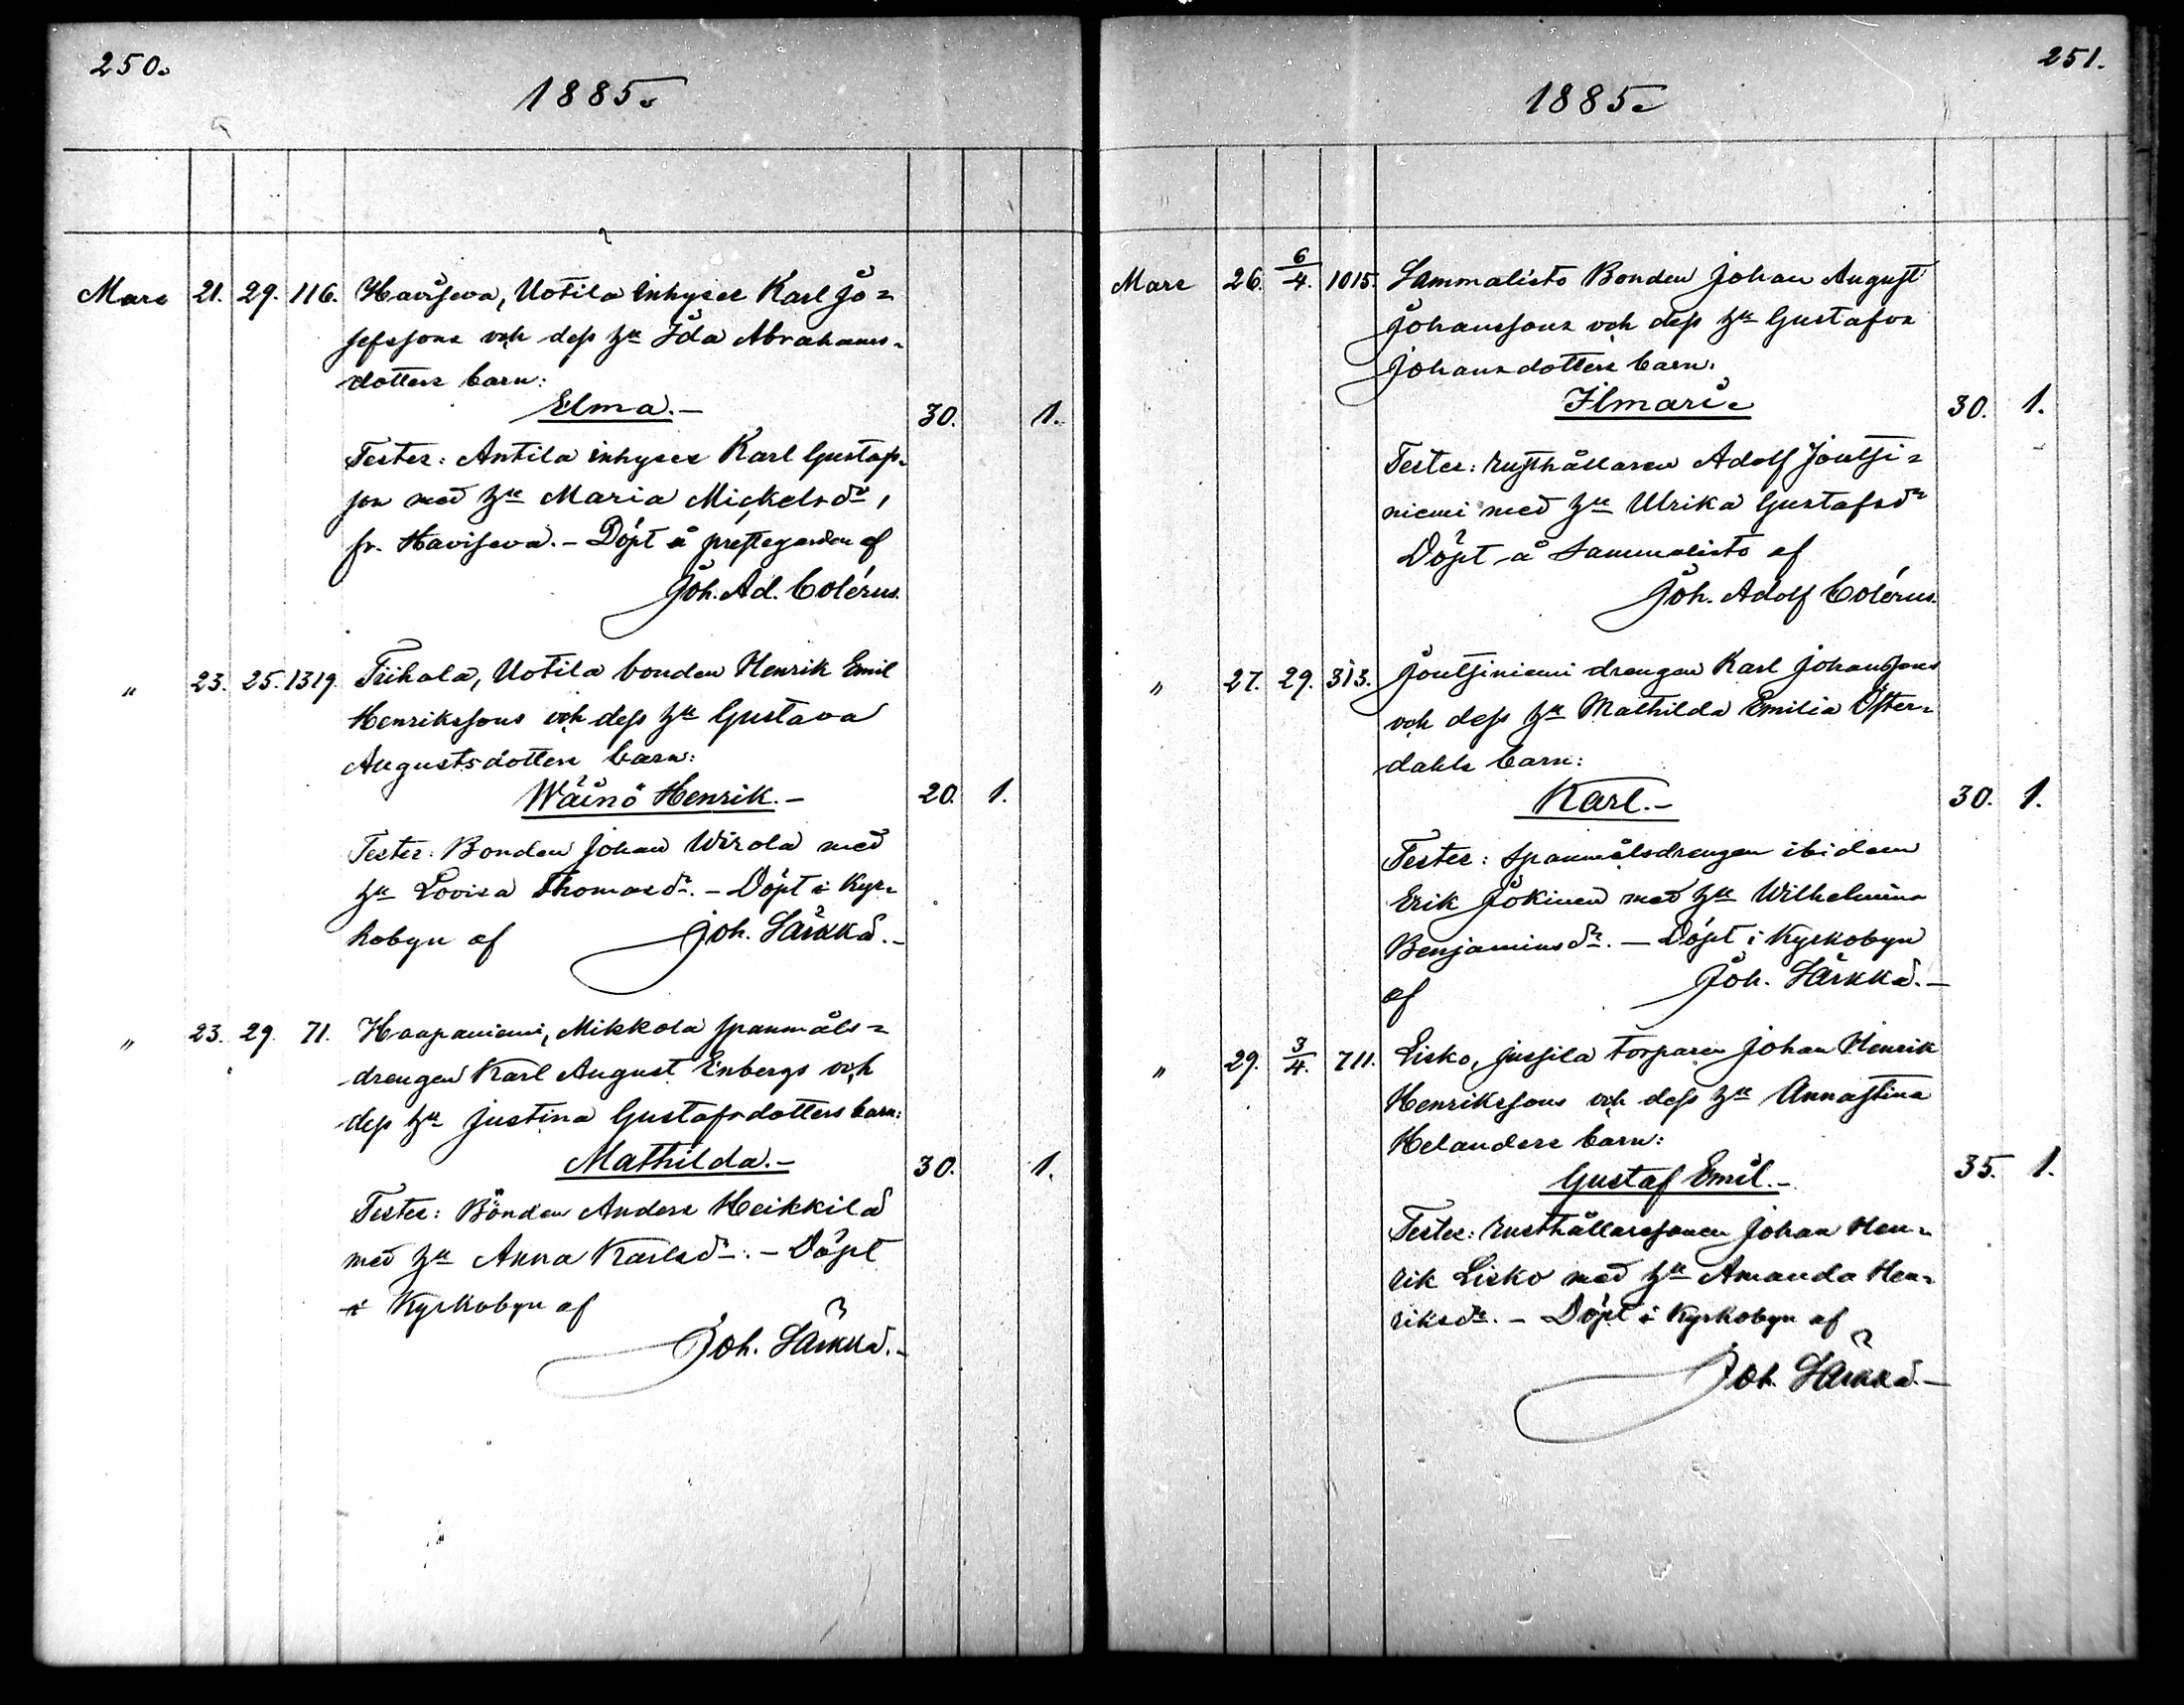 250.
1885.
Mars 21. 29. 116. Haviseva, Uotila inhyses Karl Jo=
sefssons och dess h:u Ida Abrahams=
dotters barn:
Elma.- 30. 1.
Testes: Antila inhyses Karl Gustafs=
son med h:u Maria Mickelsd:r,
fr. Haviseva. - Döpt å prestegården af
Joh. Ad. Colérus.
" 23. 25. 1319. Tiihala, Uotila bonden Henrik Emil
Henrikssons och dess h:u Gustava
Augustsdotters barn:
Wäinö Henrik.- 20. 1.
Testes: Bonden Johan Wirola med
h:u Lovisa Thomasd:r. - Döpt i Kyr=
kobyn af Joh. Särkkä.-
" 23. 29. 71. Haapaniemi, Mikkola spanmåls=
drengen Karl August Enbergs och
dess h:u Justina Gustafsdotters barn:
Mathilda.- 30. 1.
Testes: Bonden Anders Heikkilä
med h:u Anna Karlsd:r. - Döpt
i Kyrkobyn af
Joh. Särkkä.-
251.
1885.
Mars 26. 6/4. 1015. Sammalisto Bonden Johan August
Johanssons och dess h:u Gustafva
Johansdotters barn:
Ilmari. 30. 1.
Testes: rusthållaren Adolf Joutsi=
niemi med h:u Ulrika Gustafsd:r
Döpt å Sammalisto af
Joh. Adolf Colérus.
" 27. 29. 313. Joutsiniemi drengen Karl Johanssons
och dess h:u Mathilda Emilia Öster=
dahls barn:
Karl.- 30. 1.
Testes: Spanmålsdrengen ibidem
Erik Jokinen med h:u Wilhelmina
Benjaminsd:r. - Döpt i Kyrkobyn
af Joh. Särkkä.-
" 29. 3/4. 711. Lisko, Jussila torparen Johan Henrik
Henrikssons och dess h:u Annastina
Helanders barn:
Gustaf Emil.- 35. 1.
Testes: rusthållaresonen Johan Hen=
rik Lisko med h:u Amanda Hen=
riksd:r. - Döpt i Kyrkobyn af
Joh. Särkkä.-